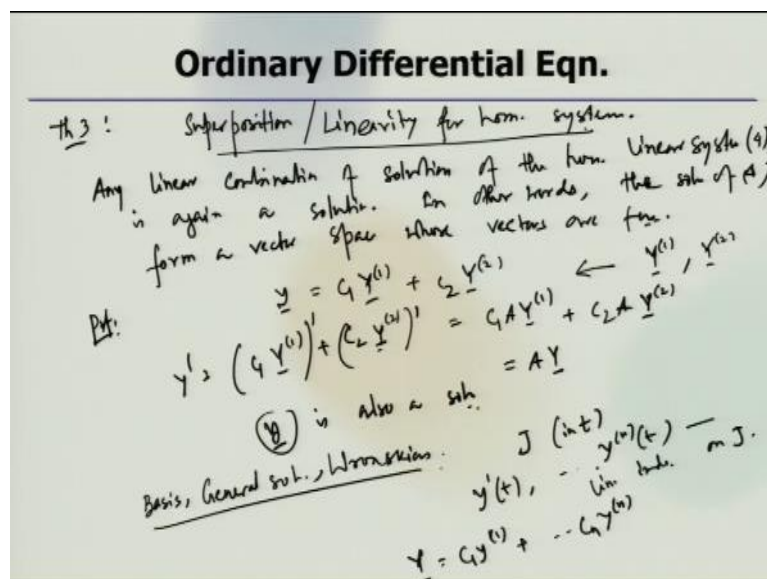 Ordinary Differential Eqn.
Th 3 : Superposition / Linearity for hom. system.
Any linear combination of solution of the hom. linear syste (4)
is again a solution. In other words, the sol. of (4)
form a vector space whose vectors are fun.
y = C₁ y⁽¹⁾ + C₂ y⁽²⁾ ← y⁽¹⁾, y⁽²⁾
Prf:
y' = (C₁ y⁽¹⁾)' + (C₂ y⁽²⁾)' = C₁ A y⁽¹⁾ + C₂ A y⁽²⁾
= A y
y is also a soln.
Basis, General sol., Wronskian.
J (in t)
y'(t), ... y⁽ⁿ⁾(t) —
lin. inde. on J.
y = C₁ y⁽¹⁾ + ... Cₙ y⁽ⁿ⁾